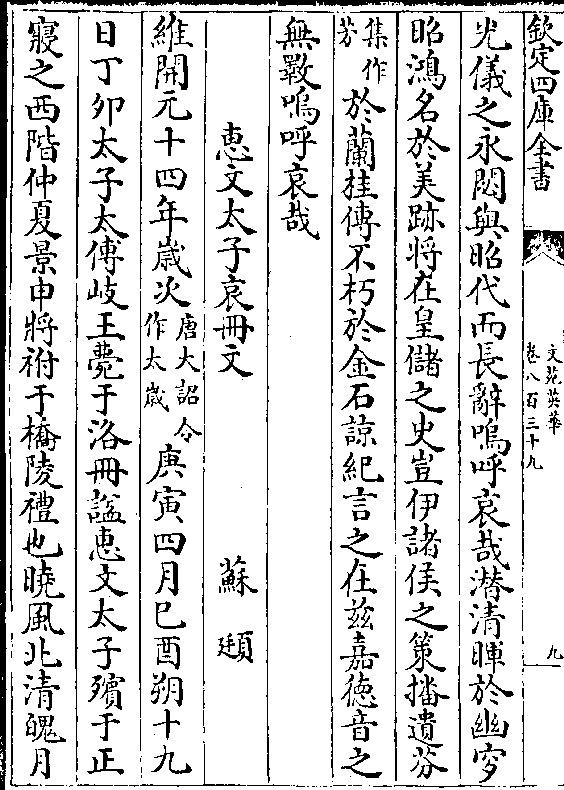 欽定四庫全書
文苑英華
卷八百三十九
九
光儀之永閟與昭代而長辭嗚呼哀哉潜清暉於幽穸
昭鴻名於美跡將在皇儲之史豈伊諸侯之策播遺芬
集作芳於蘭挂傳不朽於金石諒紀言之在兹嘉徳音之
無斁嗚呼哀哉
恵文太子哀冊文 蘇頲
維開元十四年歳次唐大詔令作太歳庚寅四月巳酉朔十九
日丁卯太子太傅岐王薨于洛冊諡恵文太子殯于正
寢之西階仲夏景申將祔于橋陵禮也曉風北清魄月